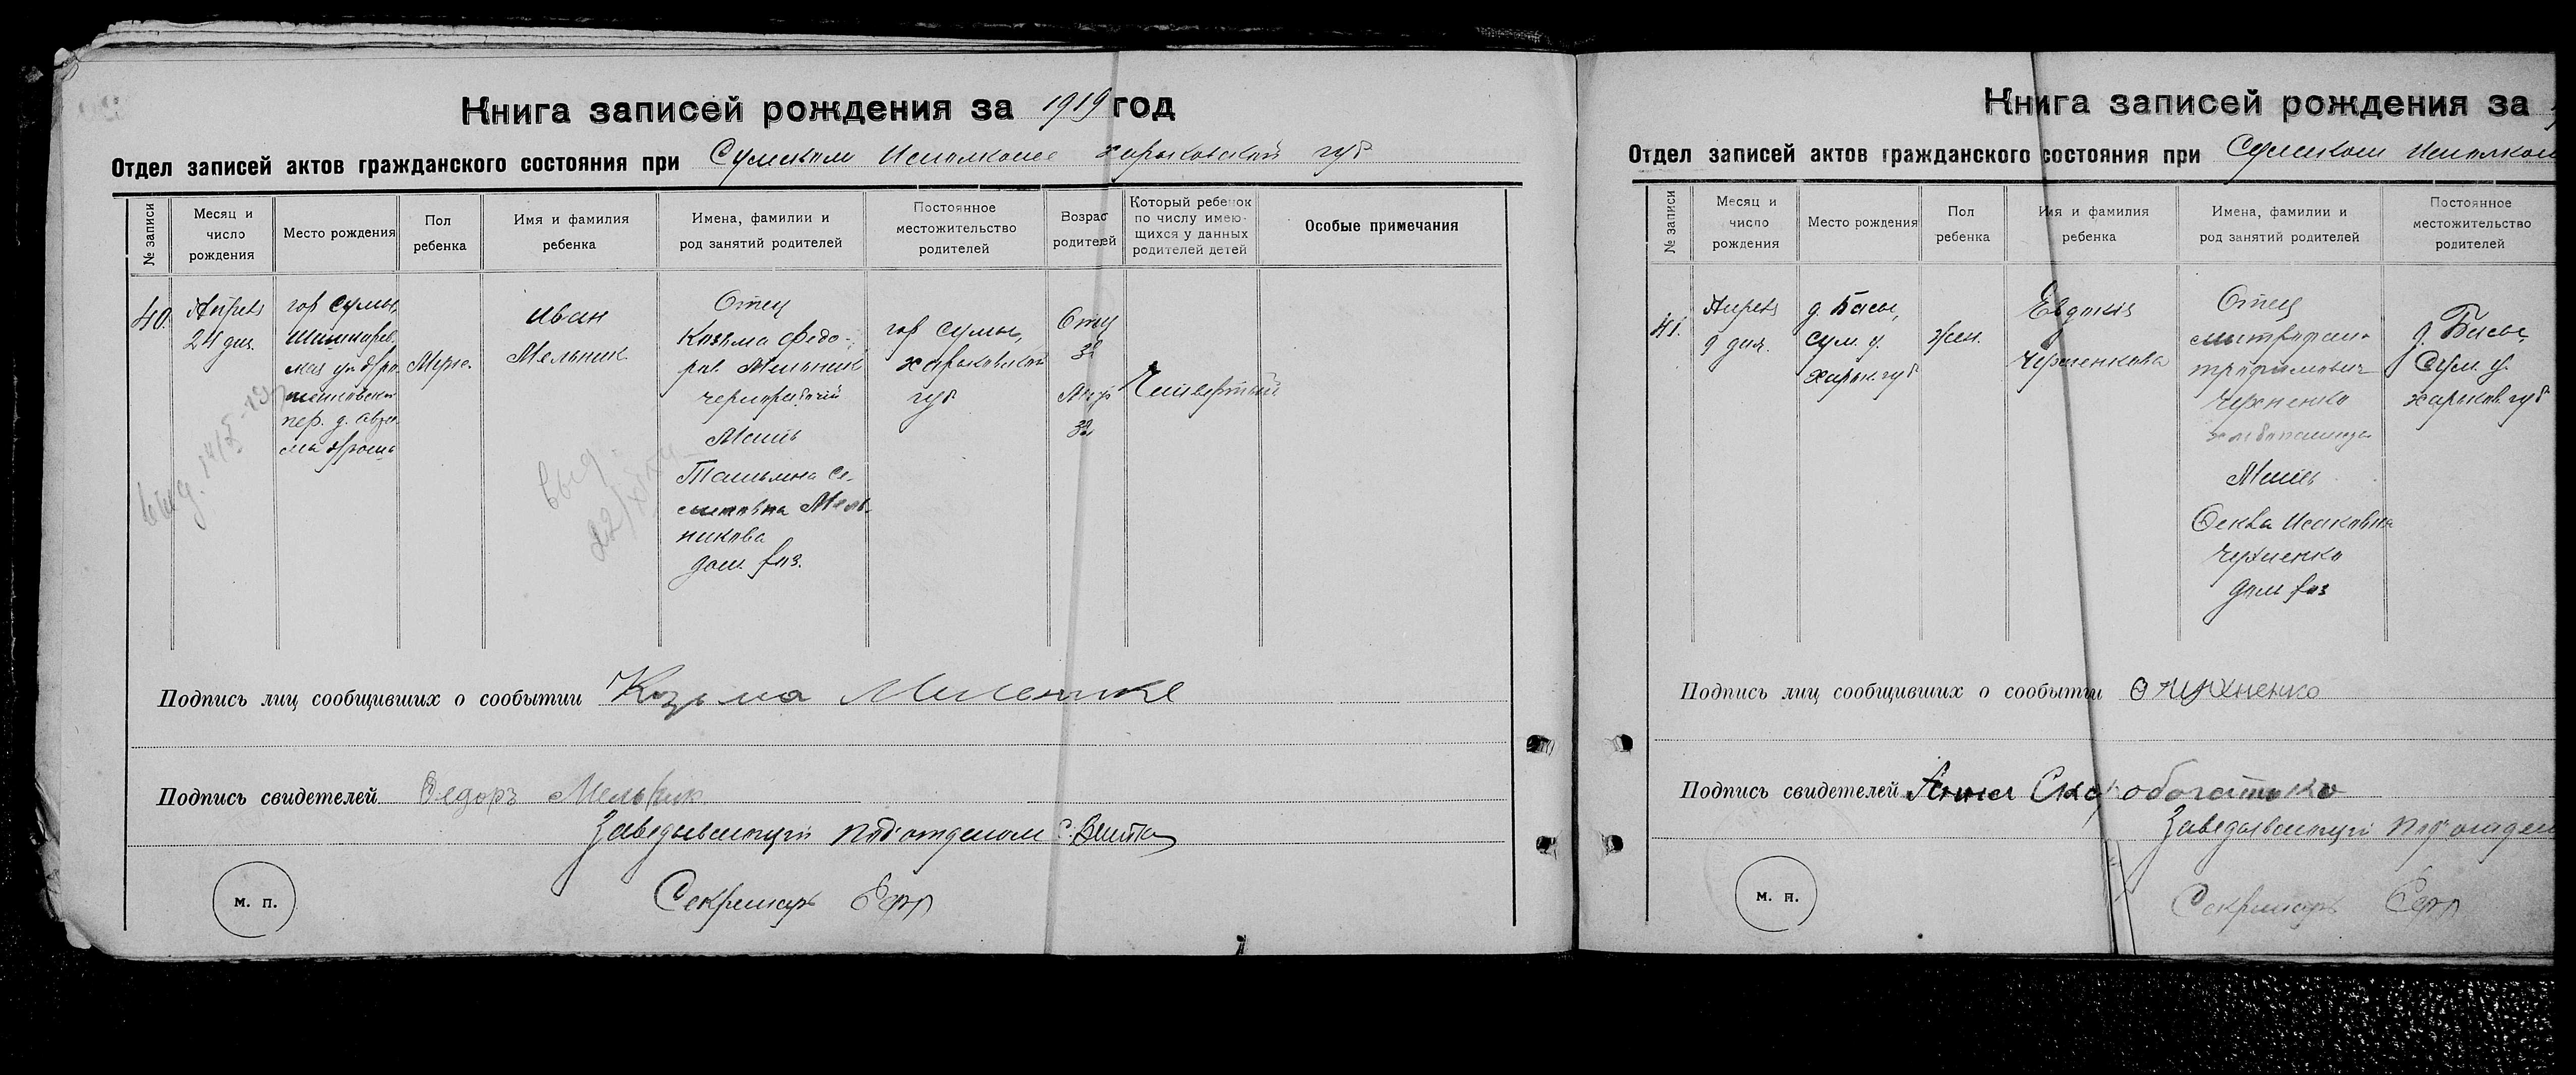 Книга записей рождения за 1919 год
Отдел записей актов гражданского состояния при Сумском Исполкоме Харьковской губ
№ записи
Месяц и число рождения
Место рождения
Пол ребенка
Имя и фамилия ребенка
Имена, фамилии и род занятий родителей
Постоянное местожительство родителей
Возраст родителей
Который ребенок по числу имеющихся у данных родителей детей
Особые примечания
40.
Апреля
24 дня.
гор Сумы,
пер. д.
Муж.
Иван
Мельник
Отец
Козьма Федо-
ров. Мельник
чернорабочий
Мать
Татьяна Се-
меновна Мель-
никова
дом. хоз.
гор Сумы,
Харьковской
губ
Отец
32
Мать
32
Четвертый
выд.
выд.
Подпись лиц сообщивших о сообытии Козьма
Подпись свидетелей Федоръ Мельник
Заведывающий подотделом С.
Секретарь
м. п.
Книга записей рождения за
Отдел записей актов гражданского состояния при Сумском Исполком
№ записи
Месяц и число рождения
Место рождения
Пол ребенка
Имя и фамилия ребенка
Имена, фамилии и род занятий родителей
Постоянное местожительство родителей
41.
Апреля
9 дня.
д. Басы,
Сум. у.
Харьк. губ
жен.
Евдокия
Отец
Митрофан
Трофимович
Мать
Исаковна
дом хоз
д. Басы,
Сум. у.
Харьков. губ
Подпись лиц сообщивших о сообытии
Подпись свидетелей Анна Скоробогатько
Заведывающий подотделом
Секретарь
м. п.